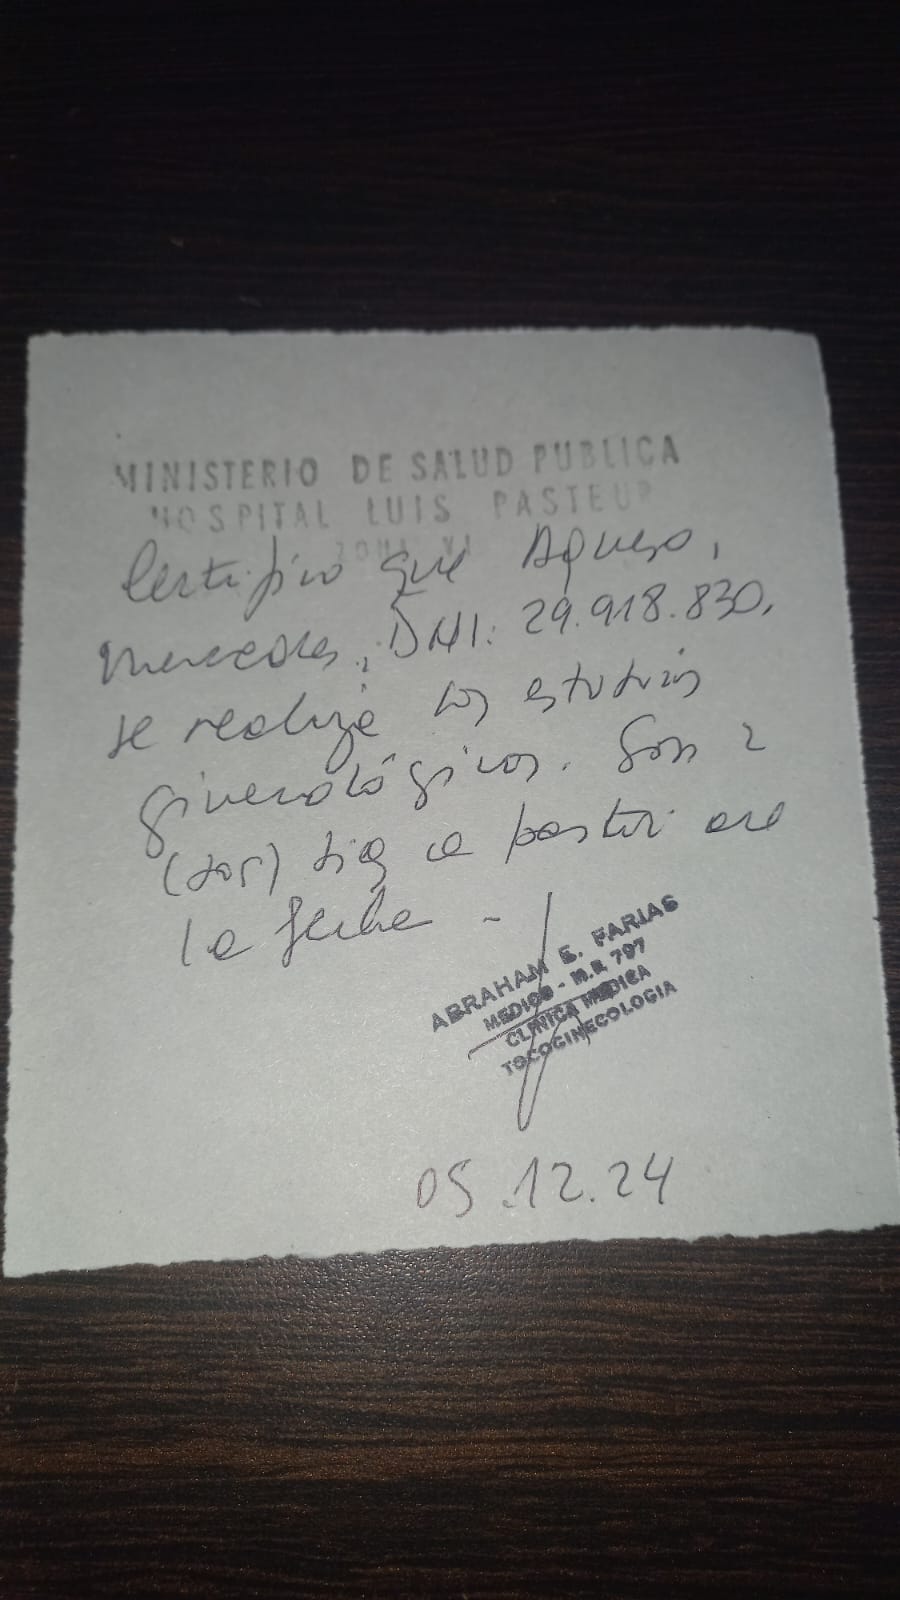 MINISTERIO DE SALUD PUBLICA
HOSPITAL LUIS PASTEUR
Certifico que
Mercedes, DNI: 29.918.830,
se realizó los estudios
ginecológicos. Son 2
(dos) días a partir de
la fecha -
ABRAHAM E. FARIAS
MEDICO - M.P. 797
CLINICA MEDICA
TOCOGINECOLOGIA
05.12.24